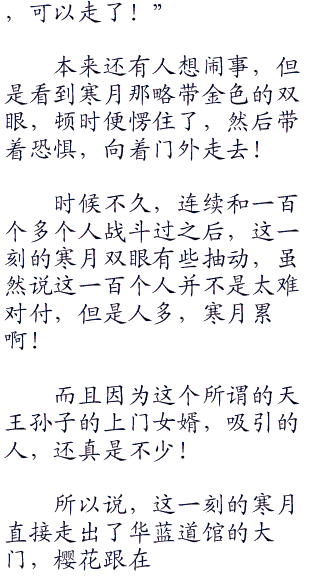 ，可以走了！”
本来还有人想闹事，但
是看到寒月那略带金色的双
眼，顿时便愣住了，然后带
着恐惧，向着门外走去！
时候不久，连续和一百
个多个人战斗过之后，这一
刻的寒月双眼有些抽动，虽
然说这一百个人并不是太难
对付，但是人多，寒月累
啊！
而且因为这个所谓的天
王孙子的上门女婿，吸引的
人，还真是不少！
所以说，这一刻的寒月
直接走出了华蓝道馆的大
门，樱花跟在